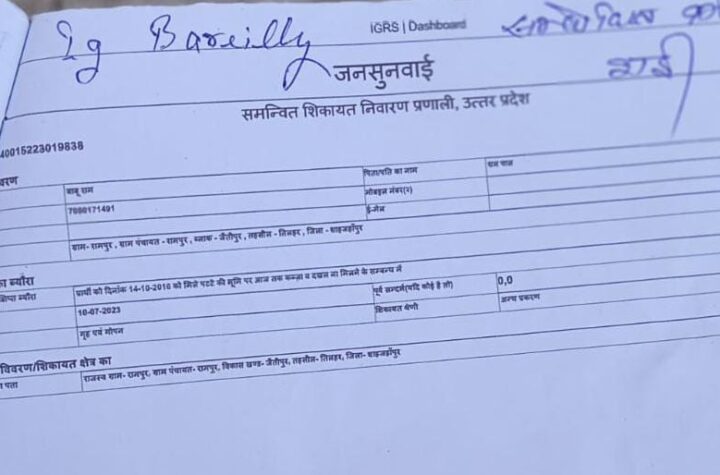 Ig Bareilly
IGRS | Dashboard
जनसुनवाई
समन्वित शिकायत निवारण प्रणाली, उत्तर प्रदेश
40015223019838
वरण
बाबू राम
पिता/पति का नाम
राम पाल
7680171491
मोबइल नंबर(२)
ई-मेल
ग्राम- रामपुर , ग्राम पंचायत - रामपुर , ब्लाक - जैतीपुर , तहसील - तिलहर , जिला - शाहजहाँपुर
का ब्यौरा
प्रार्थी को दिनांक 14-10-2016 को मिले पटटे की भूमि पर आज तक कब्ज़ा व दखल ना मिलने के सम्बन्ध में
10-07-2023
पूर्व सन्दर्भ(यदि कोई है तो)
0,0
गृह एवं गोपन
शिकायत श्रेणी
अन्य प्रकरण
विवरण/शिकायत क्षेत्र का
पता
राजस्व ग्राम- रामपुर, ग्राम पंचायत- रामपुर, विकास खण्ड- जैतीपुर, तहसील- तिलहर, जिला- शाहजहाँपुर